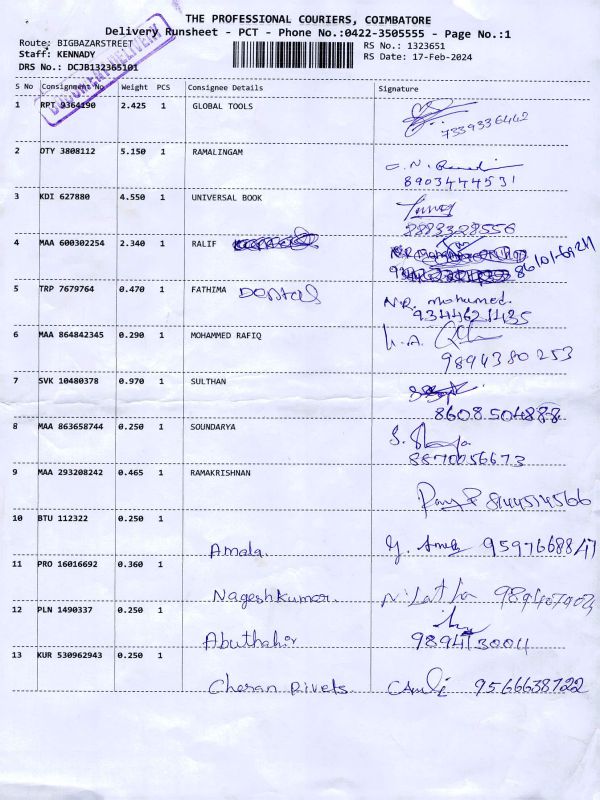 THE PROFESSIONAL COURIERS, COIMBATORE
Delivery Runsheet - PCT - Phone No.:0422-3505555 - Page No.:1
Route: BIGBAZARSTREET RS No.: 1323651
Staff: KENNADY RS Date: 17-Feb-2024
DRS No.: DCJB132365101
S No Consignment No Weight PCS Consignee Details Signature
1 RPT 9364190 2.425 1 GLOBAL TOOLS
7339336442
2 DTY 3808112 5.150 1 RAMALINGAM
8903444531
3 KDI 627880 4.550 1 UNIVERSAL BOOK
8883328556
4 MAA 600302254 2.340 1 RALIF
5 TRP 7679764 0.470 1 FATHIMA Dental N.R. mohumed.
6 MAA 864842345 0.290 1 MOHAMMED RAFIQ
9894380253
7 SVK 10480378 0.970 1 SULTHAN
8608504888
8 MAA 863658744 0.250 1 SOUNDARYA
9 MAA 293208242 0.465 1 RAMAKRISHNAN
8144514566
10 BTU 112322 0.250 1
Amala.
11 PRO 16016692 0.360 1
Nageshkumar.
12 PLN 1490337 0.250 1
Abuthahir
13 KUR 530962943 0.250 1
Charan Rivets 9566638722